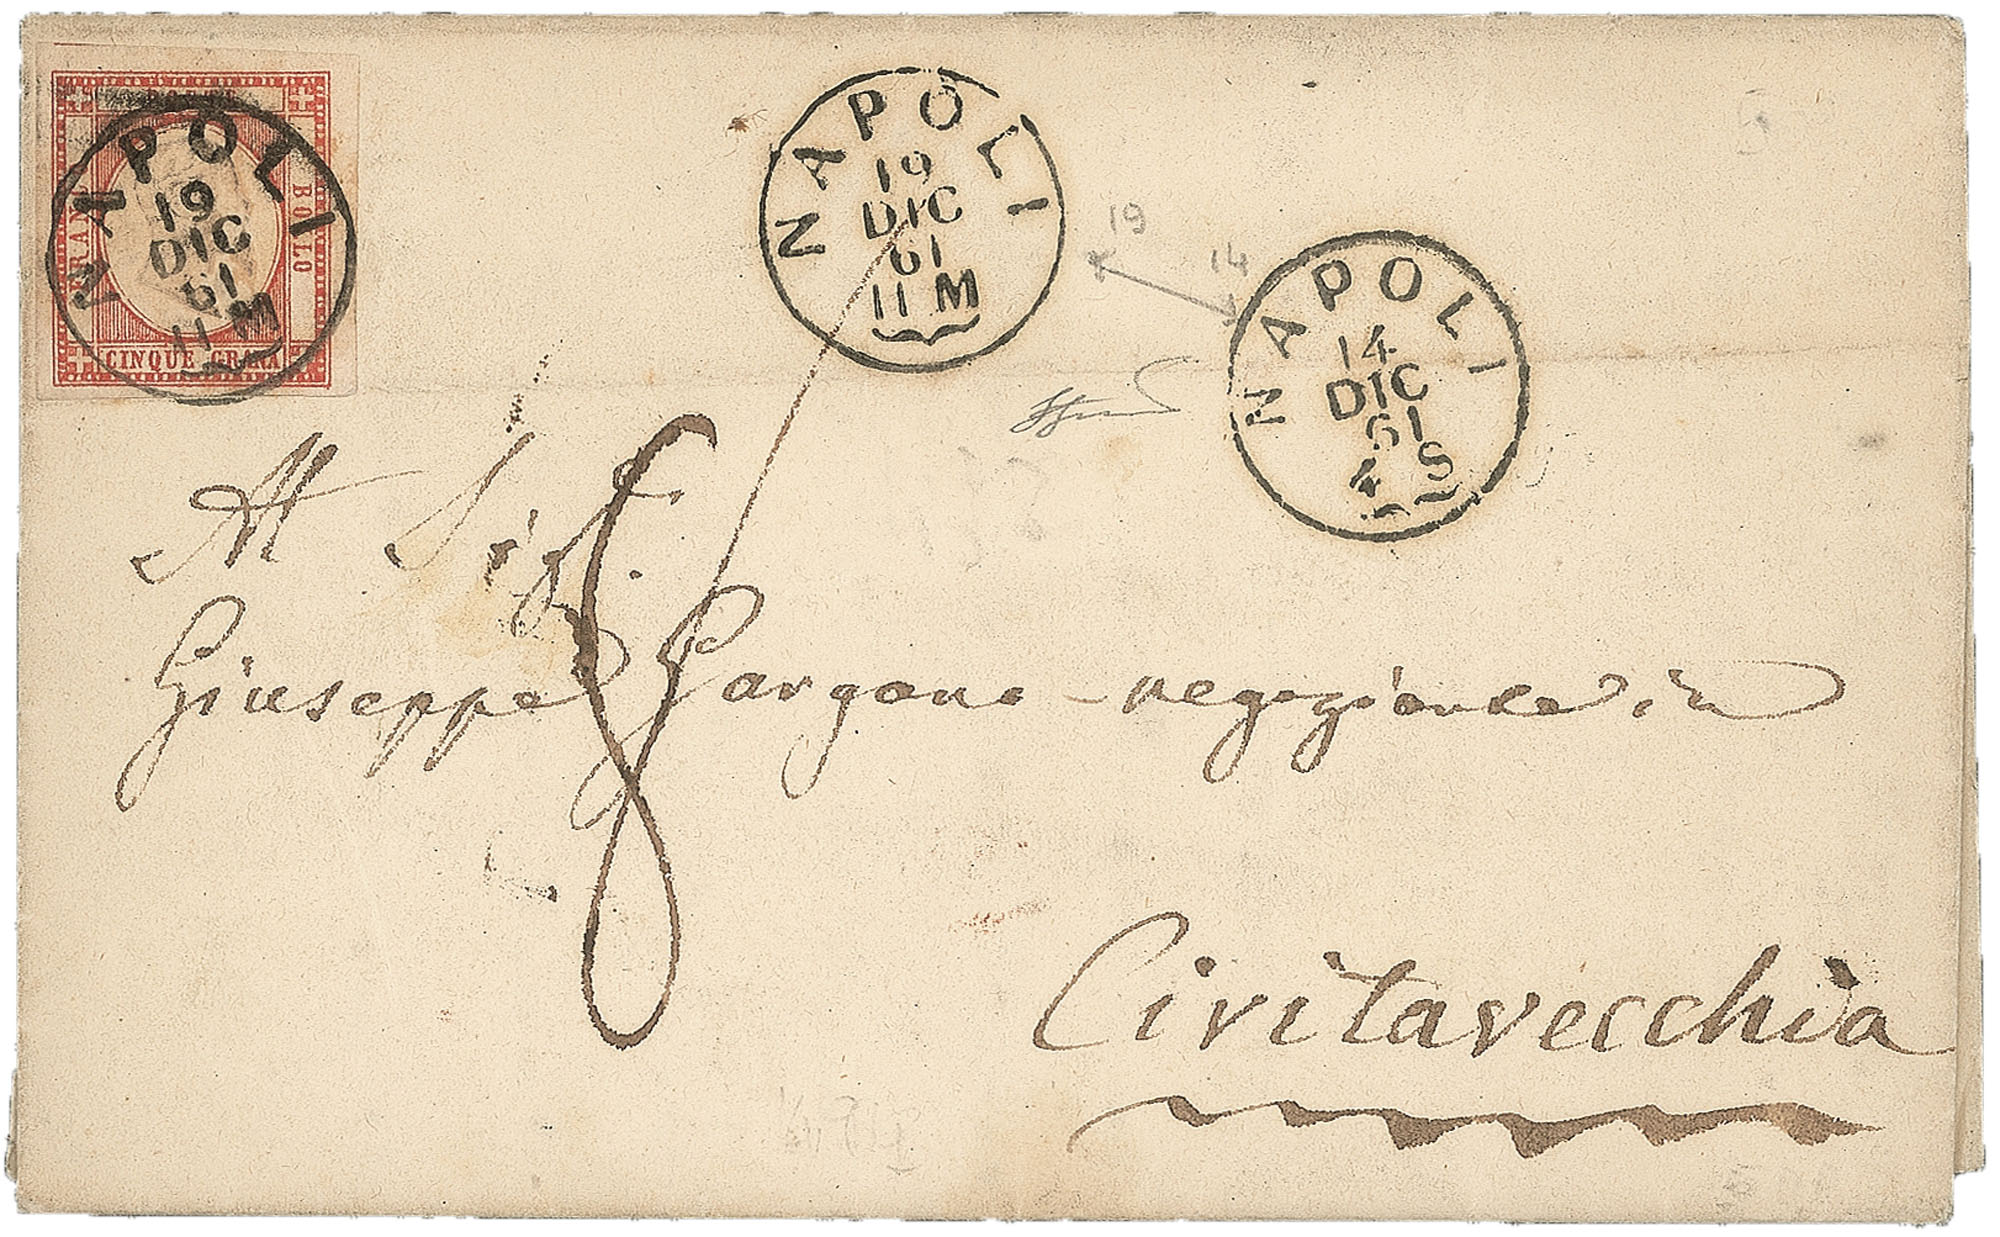 BOLLO
CINQUE GRANA
NAPOLI
19
DIC
61
11 M
NAPOLI
19
DIC
61
11 M
19
14
NAPOLI
14
DIC
61
4 S
8
Al Sig.
Giuseppe Gargano - negoziante in
Civitavecchia